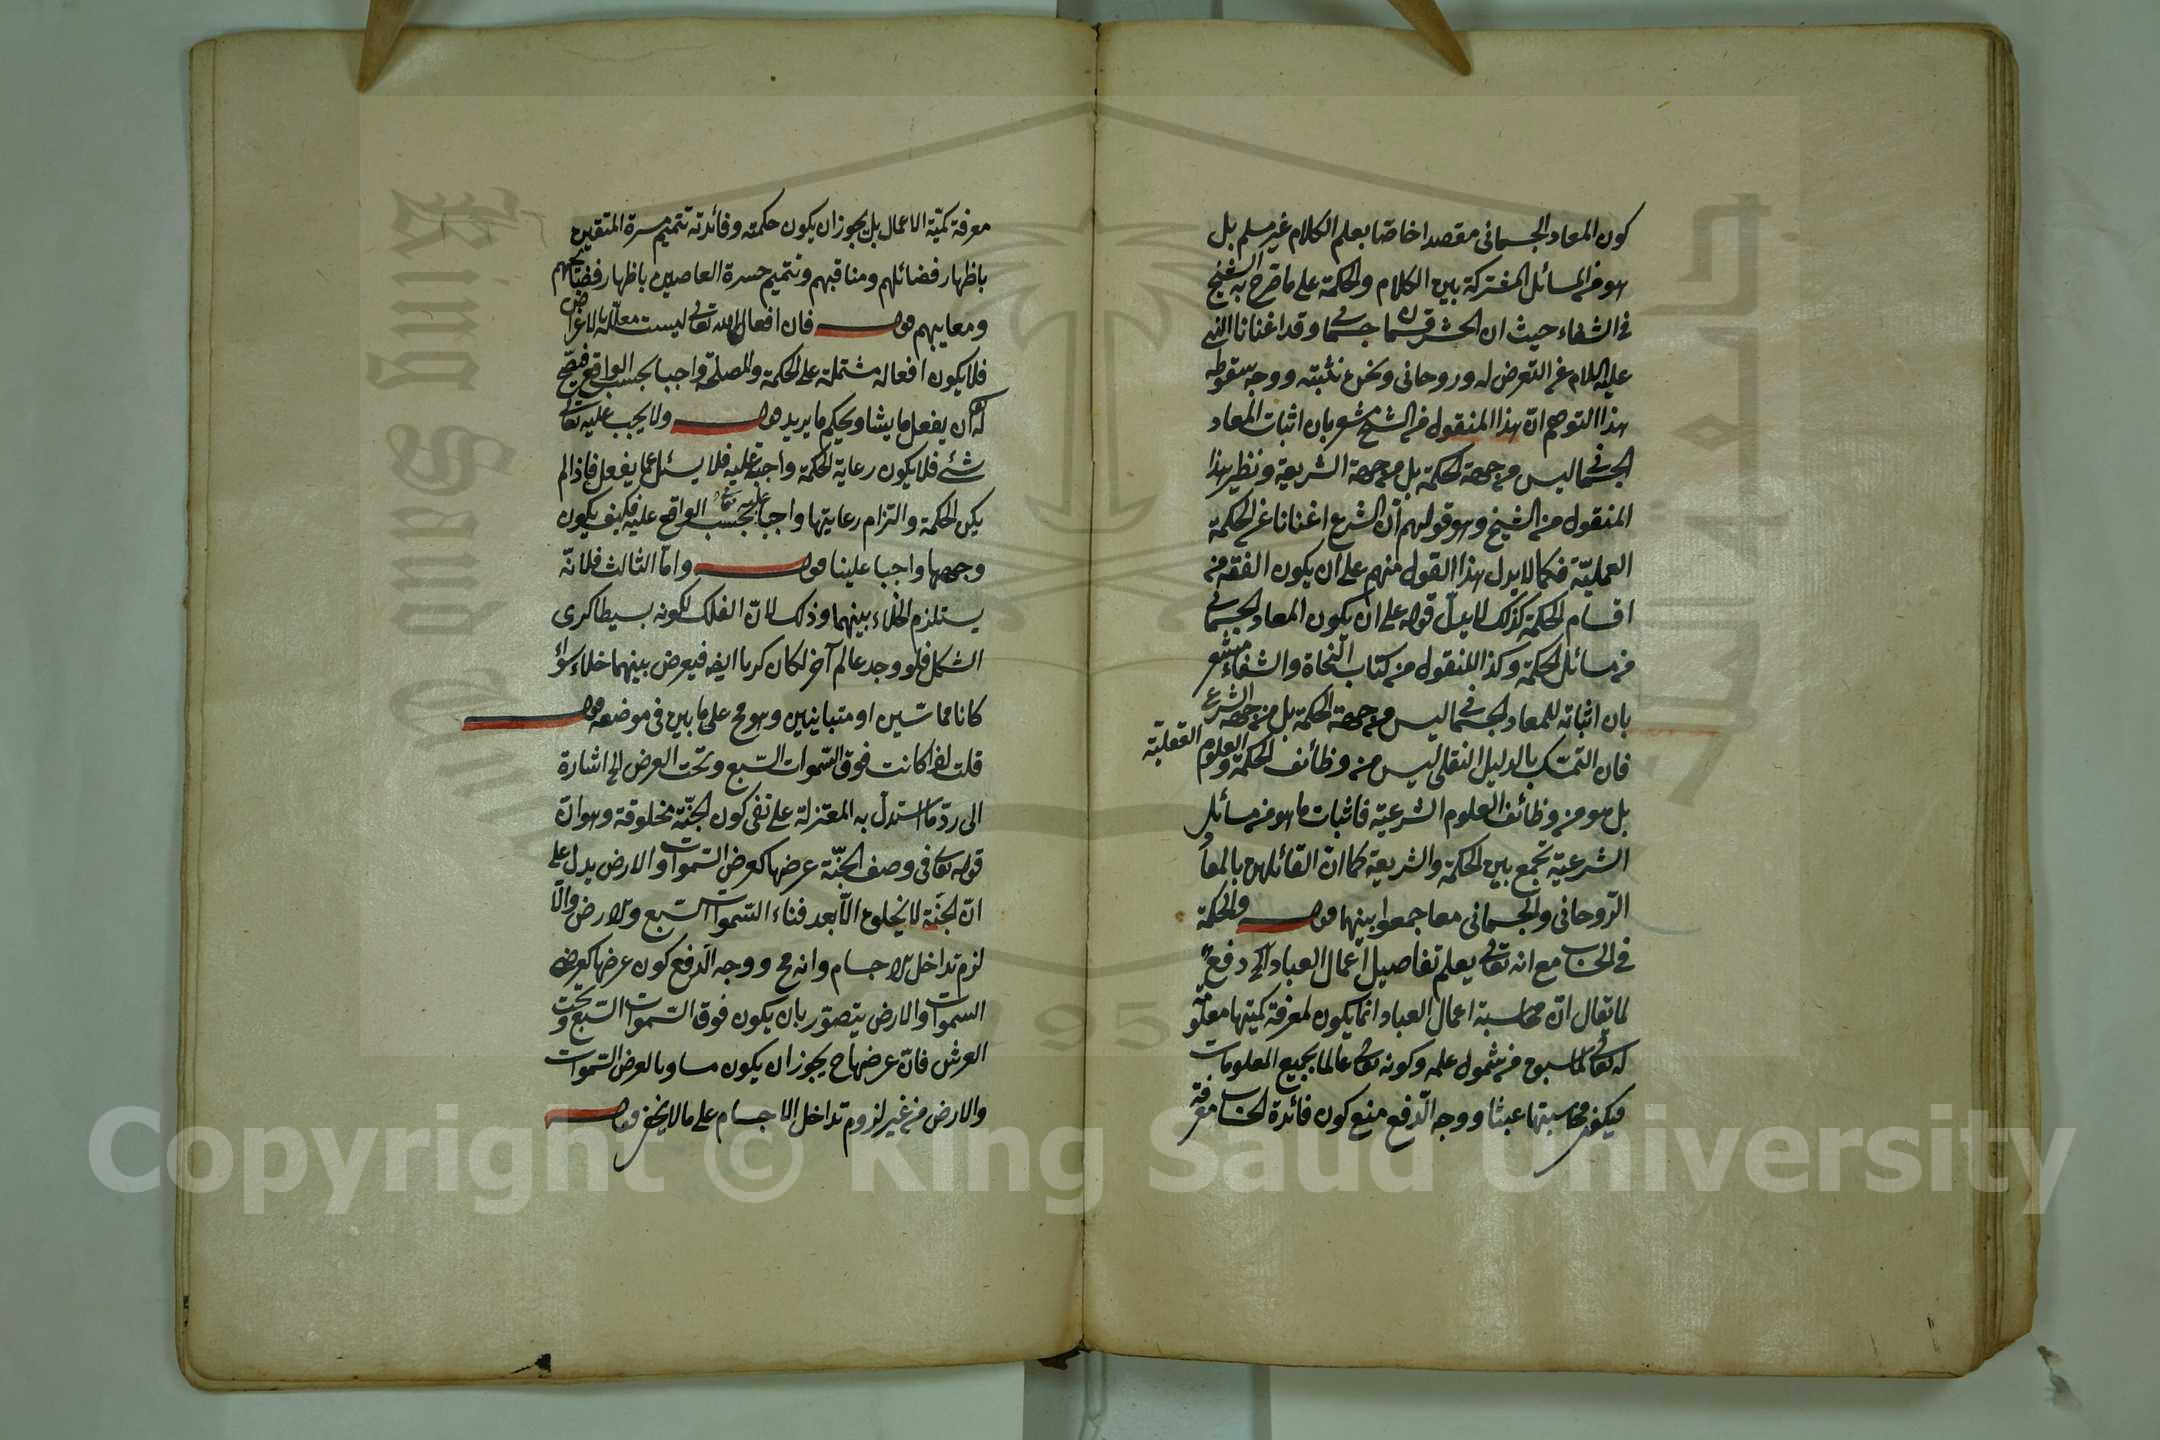 كون المعاد الجسمانى مقصدا خاصّا بعلم الكلام غير مسلم بل
هو من المسائل المشتركة بين الكلام والحكمة على ما صرّح به الشيخ
فى الشفاء حيث ان الحشر قسمان جسمانى وقد اغنانا النبى
عليه السلام عن التعرض له وروحانى ونحن نثبته ووجه سقوط
هذا التوهم انّ هذا المنقول من الشيخ مشعر بان اثبات المعاد
الجسمانى ليس من جهة الحكمة بل من جهة الشريعة ونظير هذا
المنقول من الشيخ وهو قولهم انّ الشرع اغنانا عن الحكمة
العمليّة فكما لا يدل هذا القول منهم على ان يكون الفقه من
اقسام الحكمة كذلك لا يدلّ قوله على ان يكون المعاد الجسمانى
من مسائل الحكمة وكذا المنقول من كتاب النجاة والشفاء مشعر
بان اثباته للمعاد الجسمانى ليس من جهة الحكمة بل من جهة الشرع
فان التمسّك بالدليل النقلى ليس من وظائف الحكمة والعلوم العقلية
بل هو من وظائف العلوم الشرعيّة فاثبات ما هو من مسائل
الشرعية تجمع بين الحكمة والشريعة كما ان القائلين بالمعاد
الرّوحانى والجسمانى معا جمعوا بينهما قوله والحكمة
فى الحساب مع انه تعالى يعلم تفاصيل اعمال العباد الخ دفع
لما يقال انّ محاسبة اعمال العباد انما يكون لمعرفة كميتها معلوم
له تعالى لما سبق من شمول علمه وكونه تعالى عالما بجميع المعلومات
فيكون محاسبتها عبثا ووجه الدّفع منع كون فائدة الحساب معرفة
معرفة كمّية الاعمال بل يجوز ان يكون حكمته وفائدته تتميم مسرة المتقين
باظهار فضائلهم ومناقبهم وتتميم حسرة العاصين باظهار فضايحهم
ومعايبهم قوله فان افعال الله تعالى ليست معلّلة بالاغراض
فلا يكون افعاله مشتملة على الحكمة والمصلحة واجبا بحسب الواقع فيصحّ
له ان يفعل ما يشا ويحكم ما يريد قوله ولا يجب عليه تعالى
شئ فلا يكون رعاية الحكمة واجبة عليه فلا يسئل عمّا يفعل فاذا لم
يكن الحكمة والتزام رعايتها واجبا عليه تعالى بحسب الواقع عليه فكيف يكون
وجهها واجبا علينا قوله وامّا الثالث فلانّه
يستلزم الخلاء بينهما وذلك لانّ الفلك لكونه بسيطا كرى
الشكل فلو وجد عالم آخر لكان كريا ايضا فيعرض بينهما خلاء سواء
كانا مماسّين او متباينين وهو مح على ما بين فى موضعه قوله
قلت اذا كانت فوق السّموات السّبع وتحت العرض الخ اشارة
الى ردّ ما استدلّ به المعتزلة على نفى كون الجنّة مخلوقة وهو انّ
قوله تعالى فى وصف الجنّة عرضها كعرض السّموات والارض يدل على
انّ الجنّة لا يخلق الّا بعد فناء السّموات السّبع والارض والّا
لزم تداخل الاجسام وانه مح ووجه الدّفع كون عرضها كعرض
السموات والارض يتصوّر بان يكون فوق السّموات السّبع وتحت
العرش فانّ عرضها ح يجوز ان يكون مساويا لعرض السّموات
والارض من غير لزوم تداخل الاجسام على ما لا يخفى قوله
Copyright © King Saud University
King Saud University
جامعة الملك سعود
1957